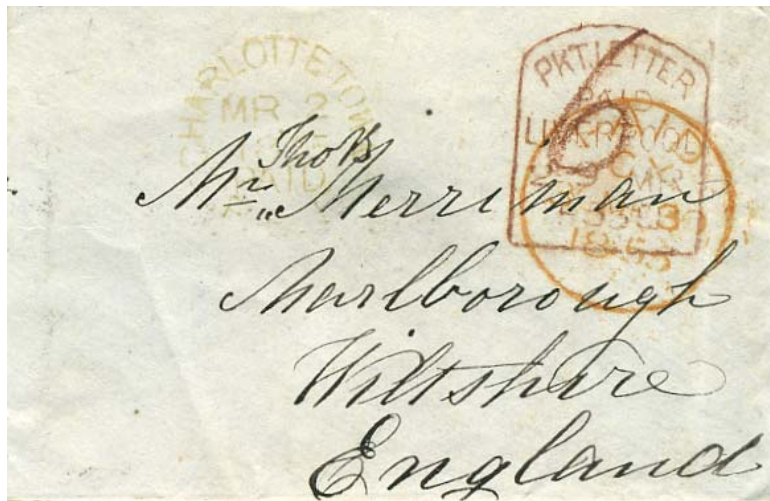 CHARLOTTETOWN
MR 2
PAID
PKT. LETTER
PAID
LIVERPOOL
PAID
MR
1863
Thos B
Mr. Merriman
Marlborough
Wiltshire
England